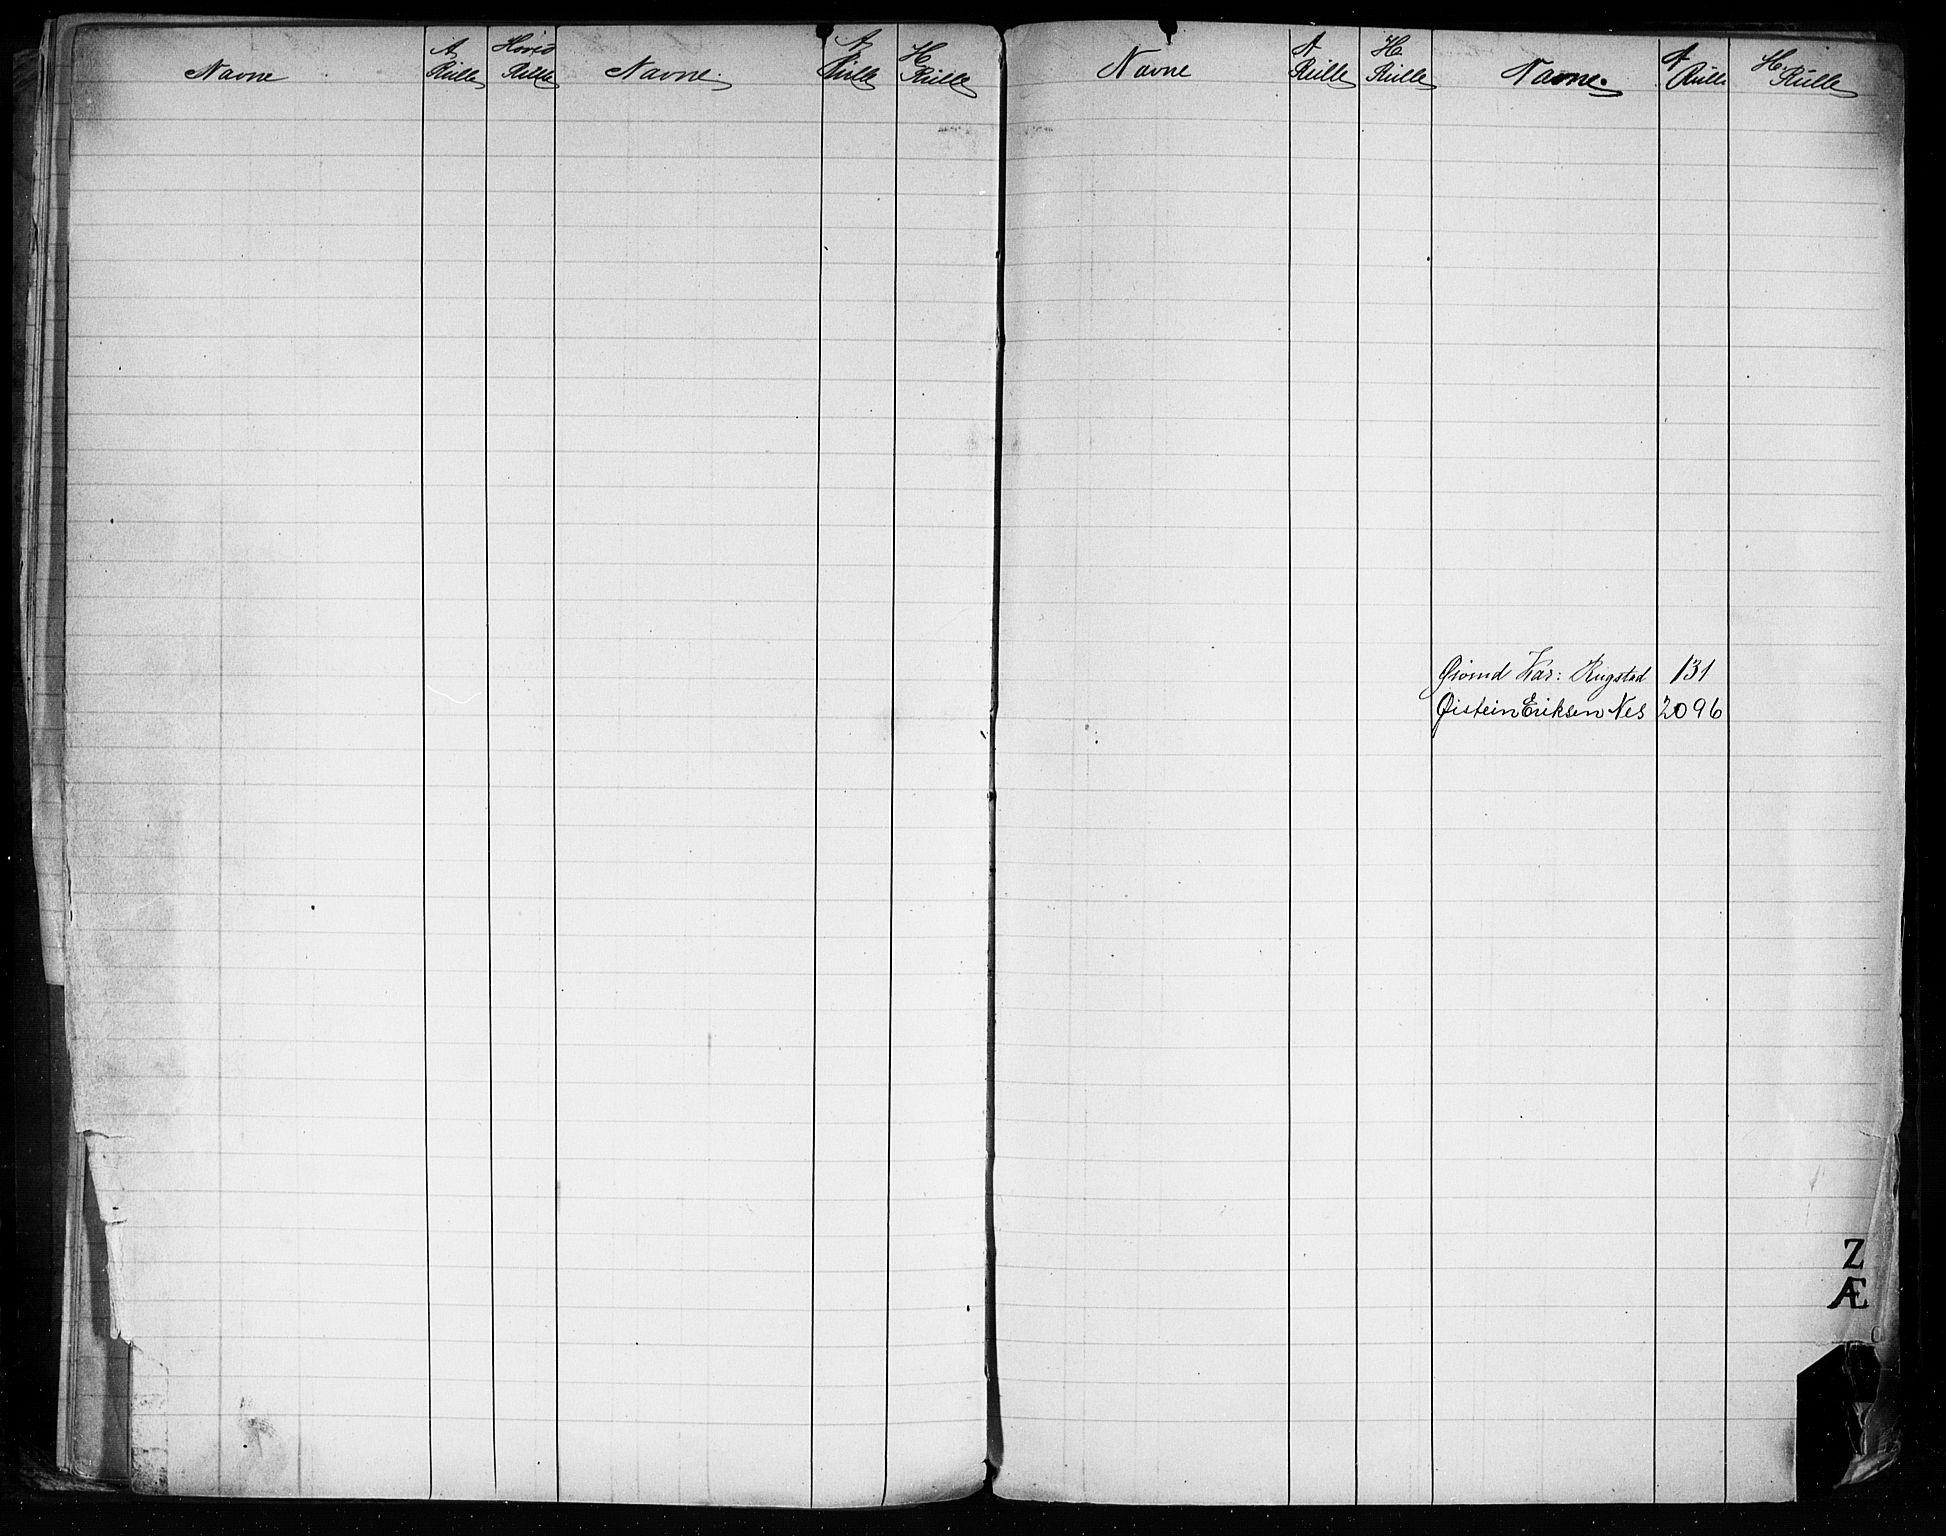 Navne A Rulle Hoved Rulle Navne. A Rulle H Rulle
Navne A Rulle H. Rulle Navne. A Rulle H. Rulle
Øivind Kar: Ringstad 131
Øistein Eriksen Nes 2096
Z
Æ